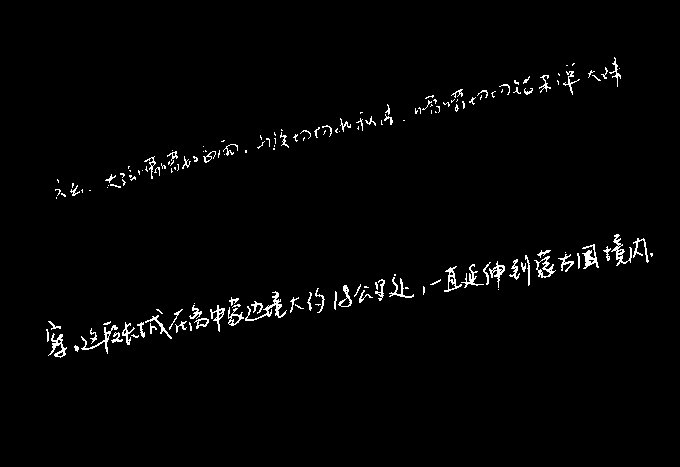 大弦嘈嘈如急雨,小弦切切如私语,嘈嘈切切错杂弹大珠
察。这段长城在离中蒙边境大约18公里处,一直延伸到蒙古国境内,